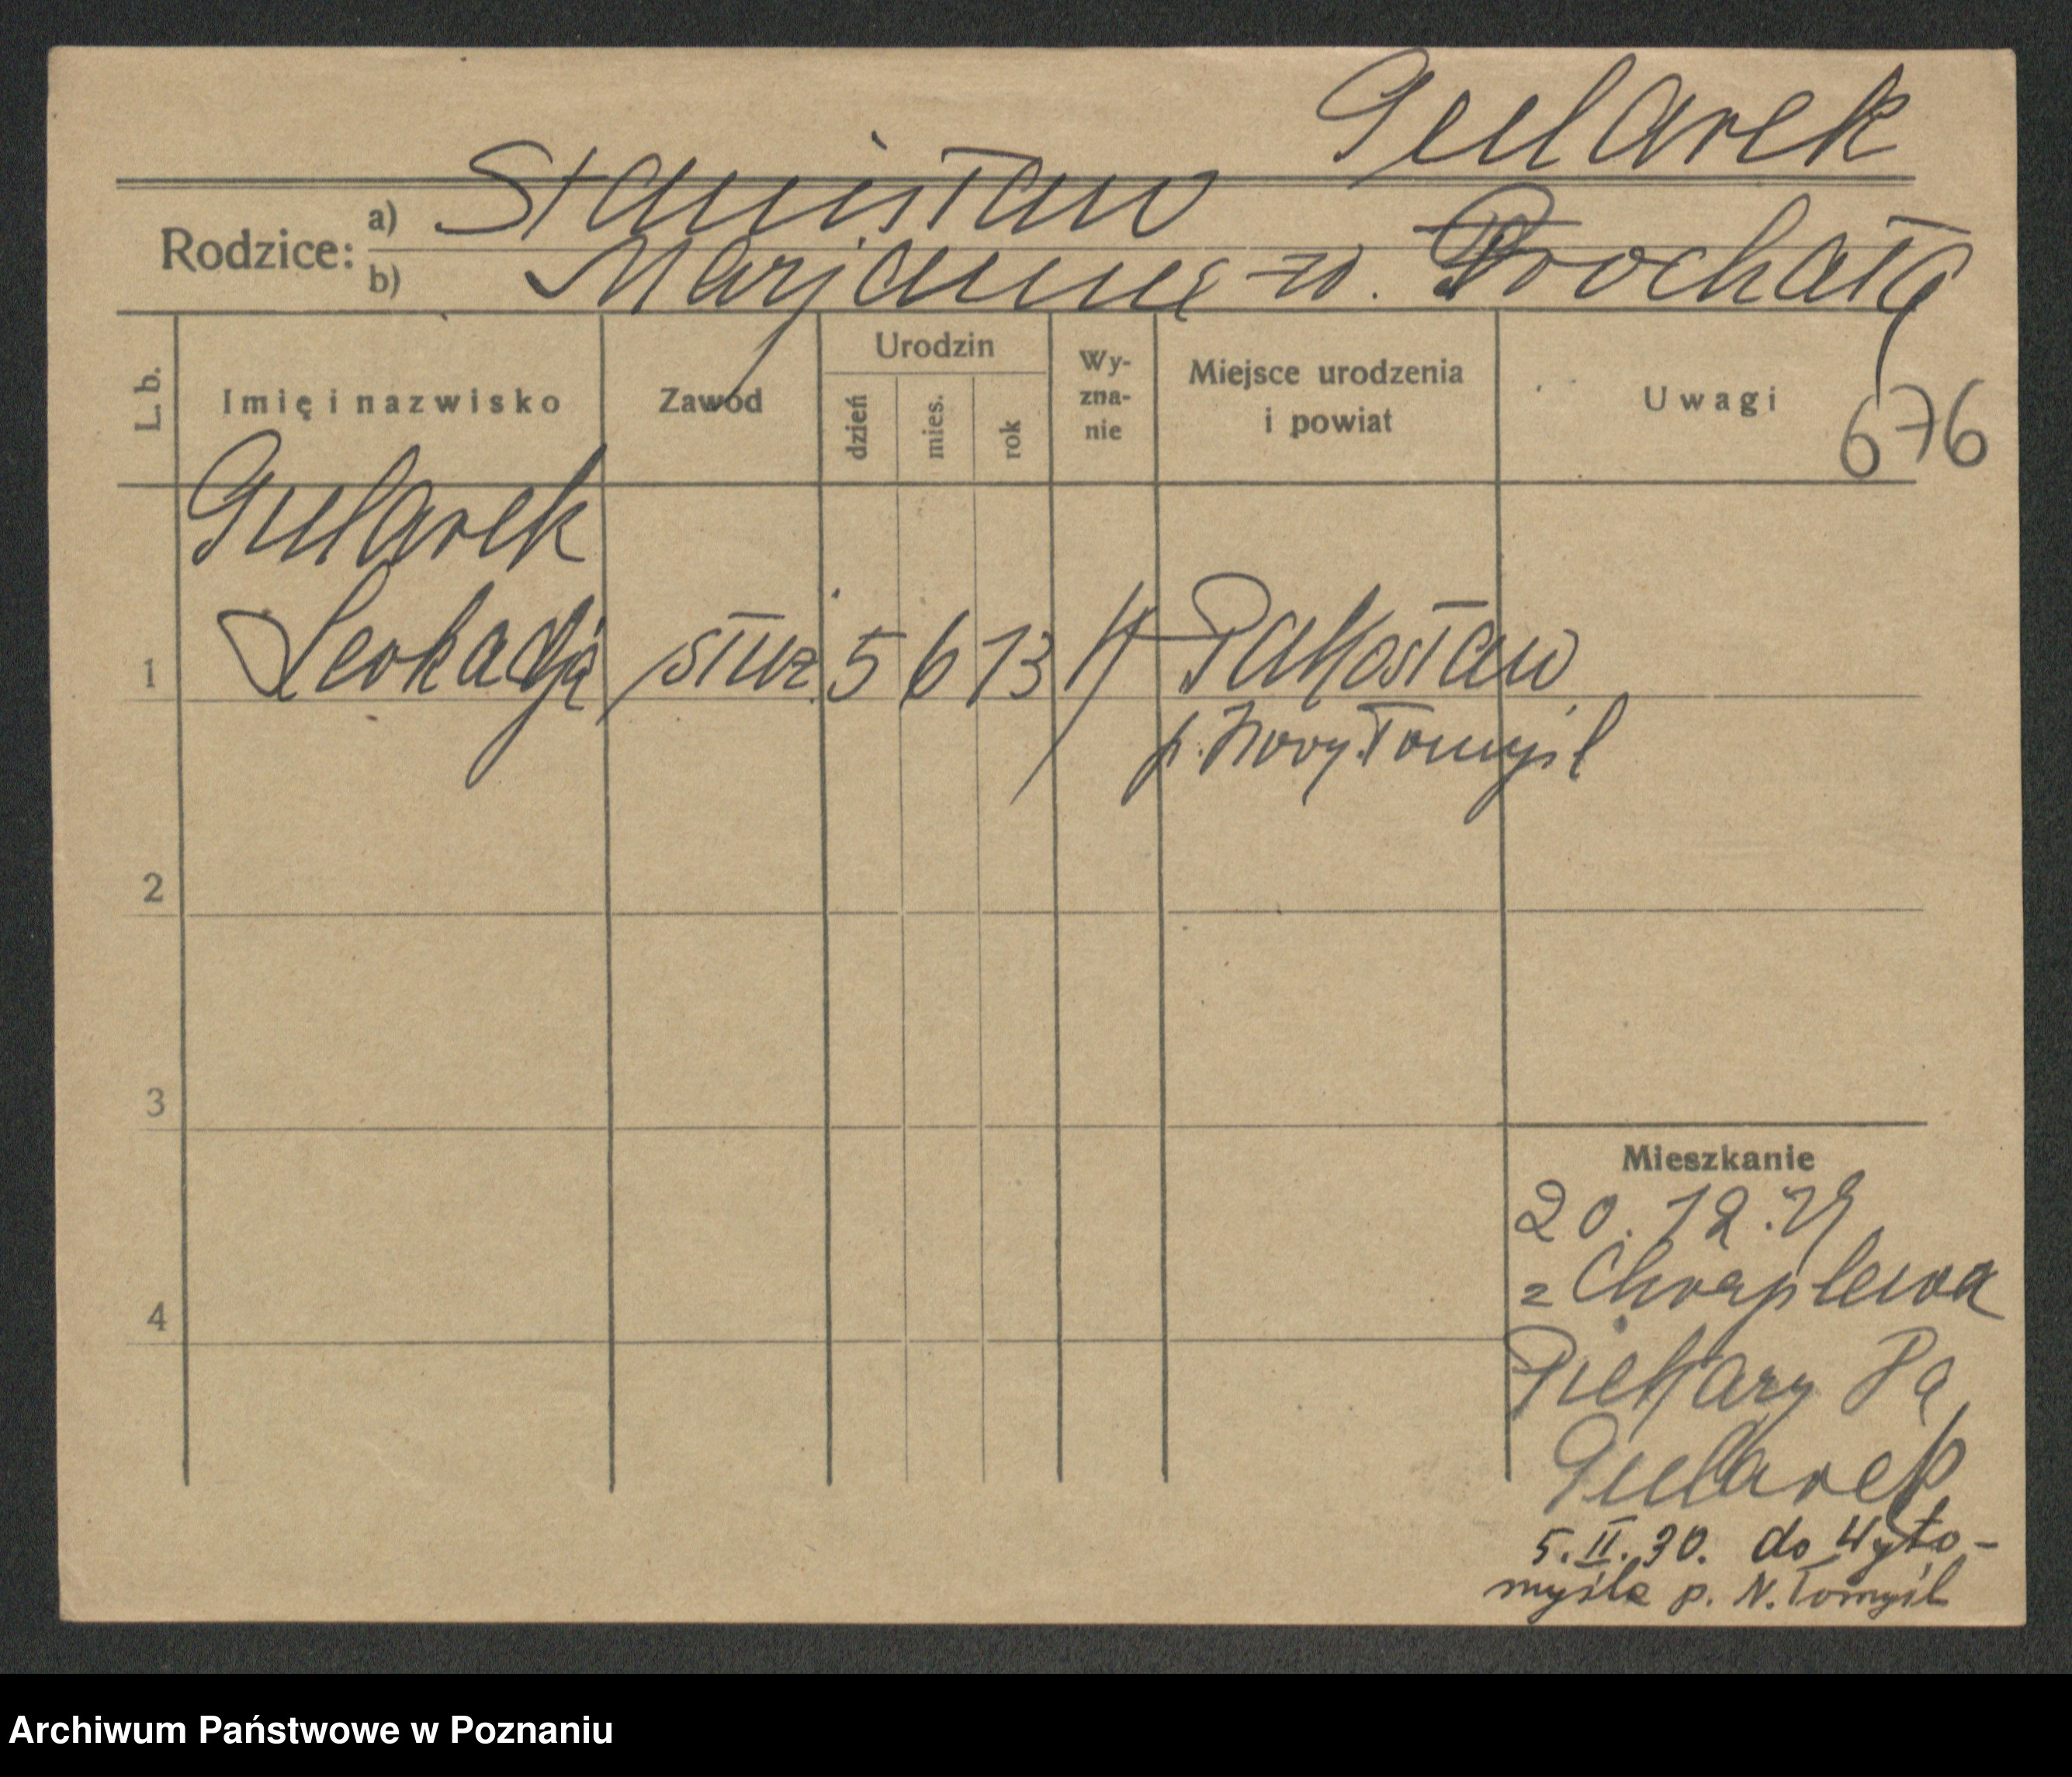 Gularek
Rodzice: a) Stanisław
b) Marjanna z d. Prochała
L. b. Imię i nazwisko Zawód Urodzin dzień mies. rok Wy-zna-nie Miejsce urodzenia i powiat Uwagi
676
Gularek
1 Leokadja służ. 5 6 13 K Pakosław
p. Nowy Tomyśl
2
3
Mieszkanie
20.12.29
z Chraplewa
4
Piekary
Gularek
5.II.30. do Wyto-
myśla p. N. Tomyśl
Archiwum Państwowe w Poznaniu